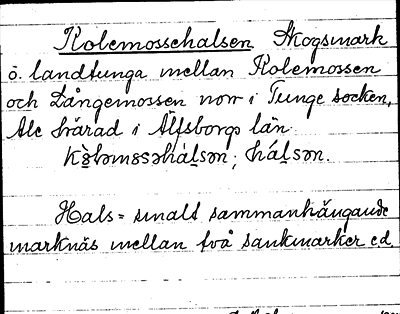 Kolemossehalsen Skogsmark
o. landtunga mellan Kolemossen
och Långemossen norr i Tunge socken,
Ale härad i Älfsborgs län.
hálsən.
Hals = smalt sammanhängande
marknäs mellan två sankmarker e.d.